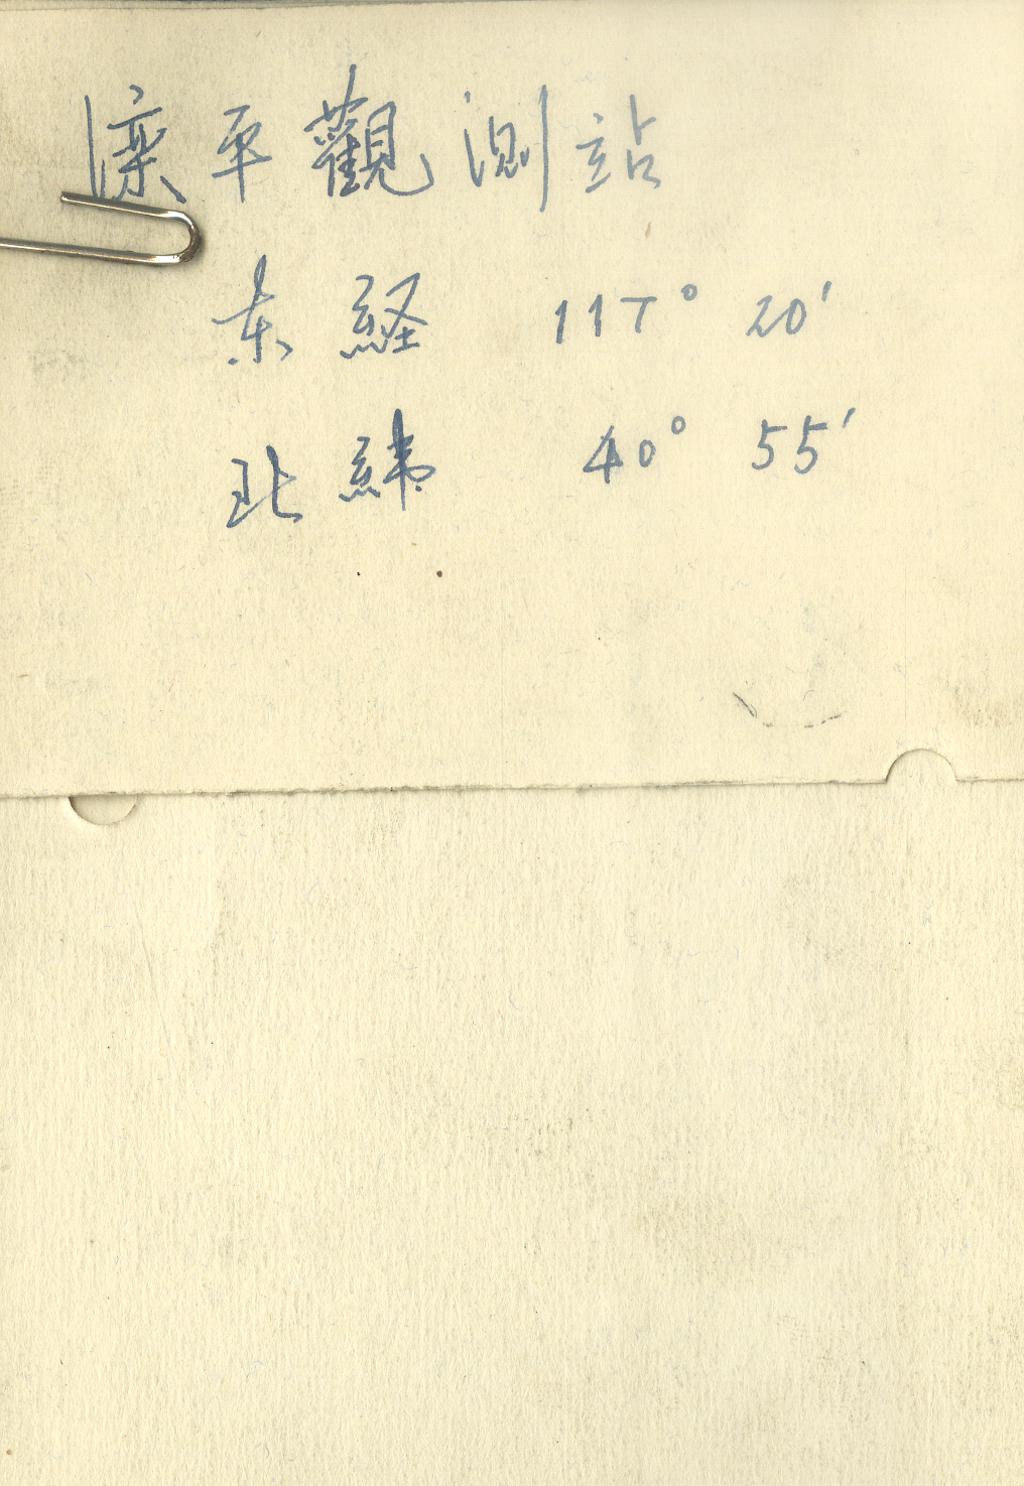 滦平觀测站
东経 117° 20′
北緯 40° 55′